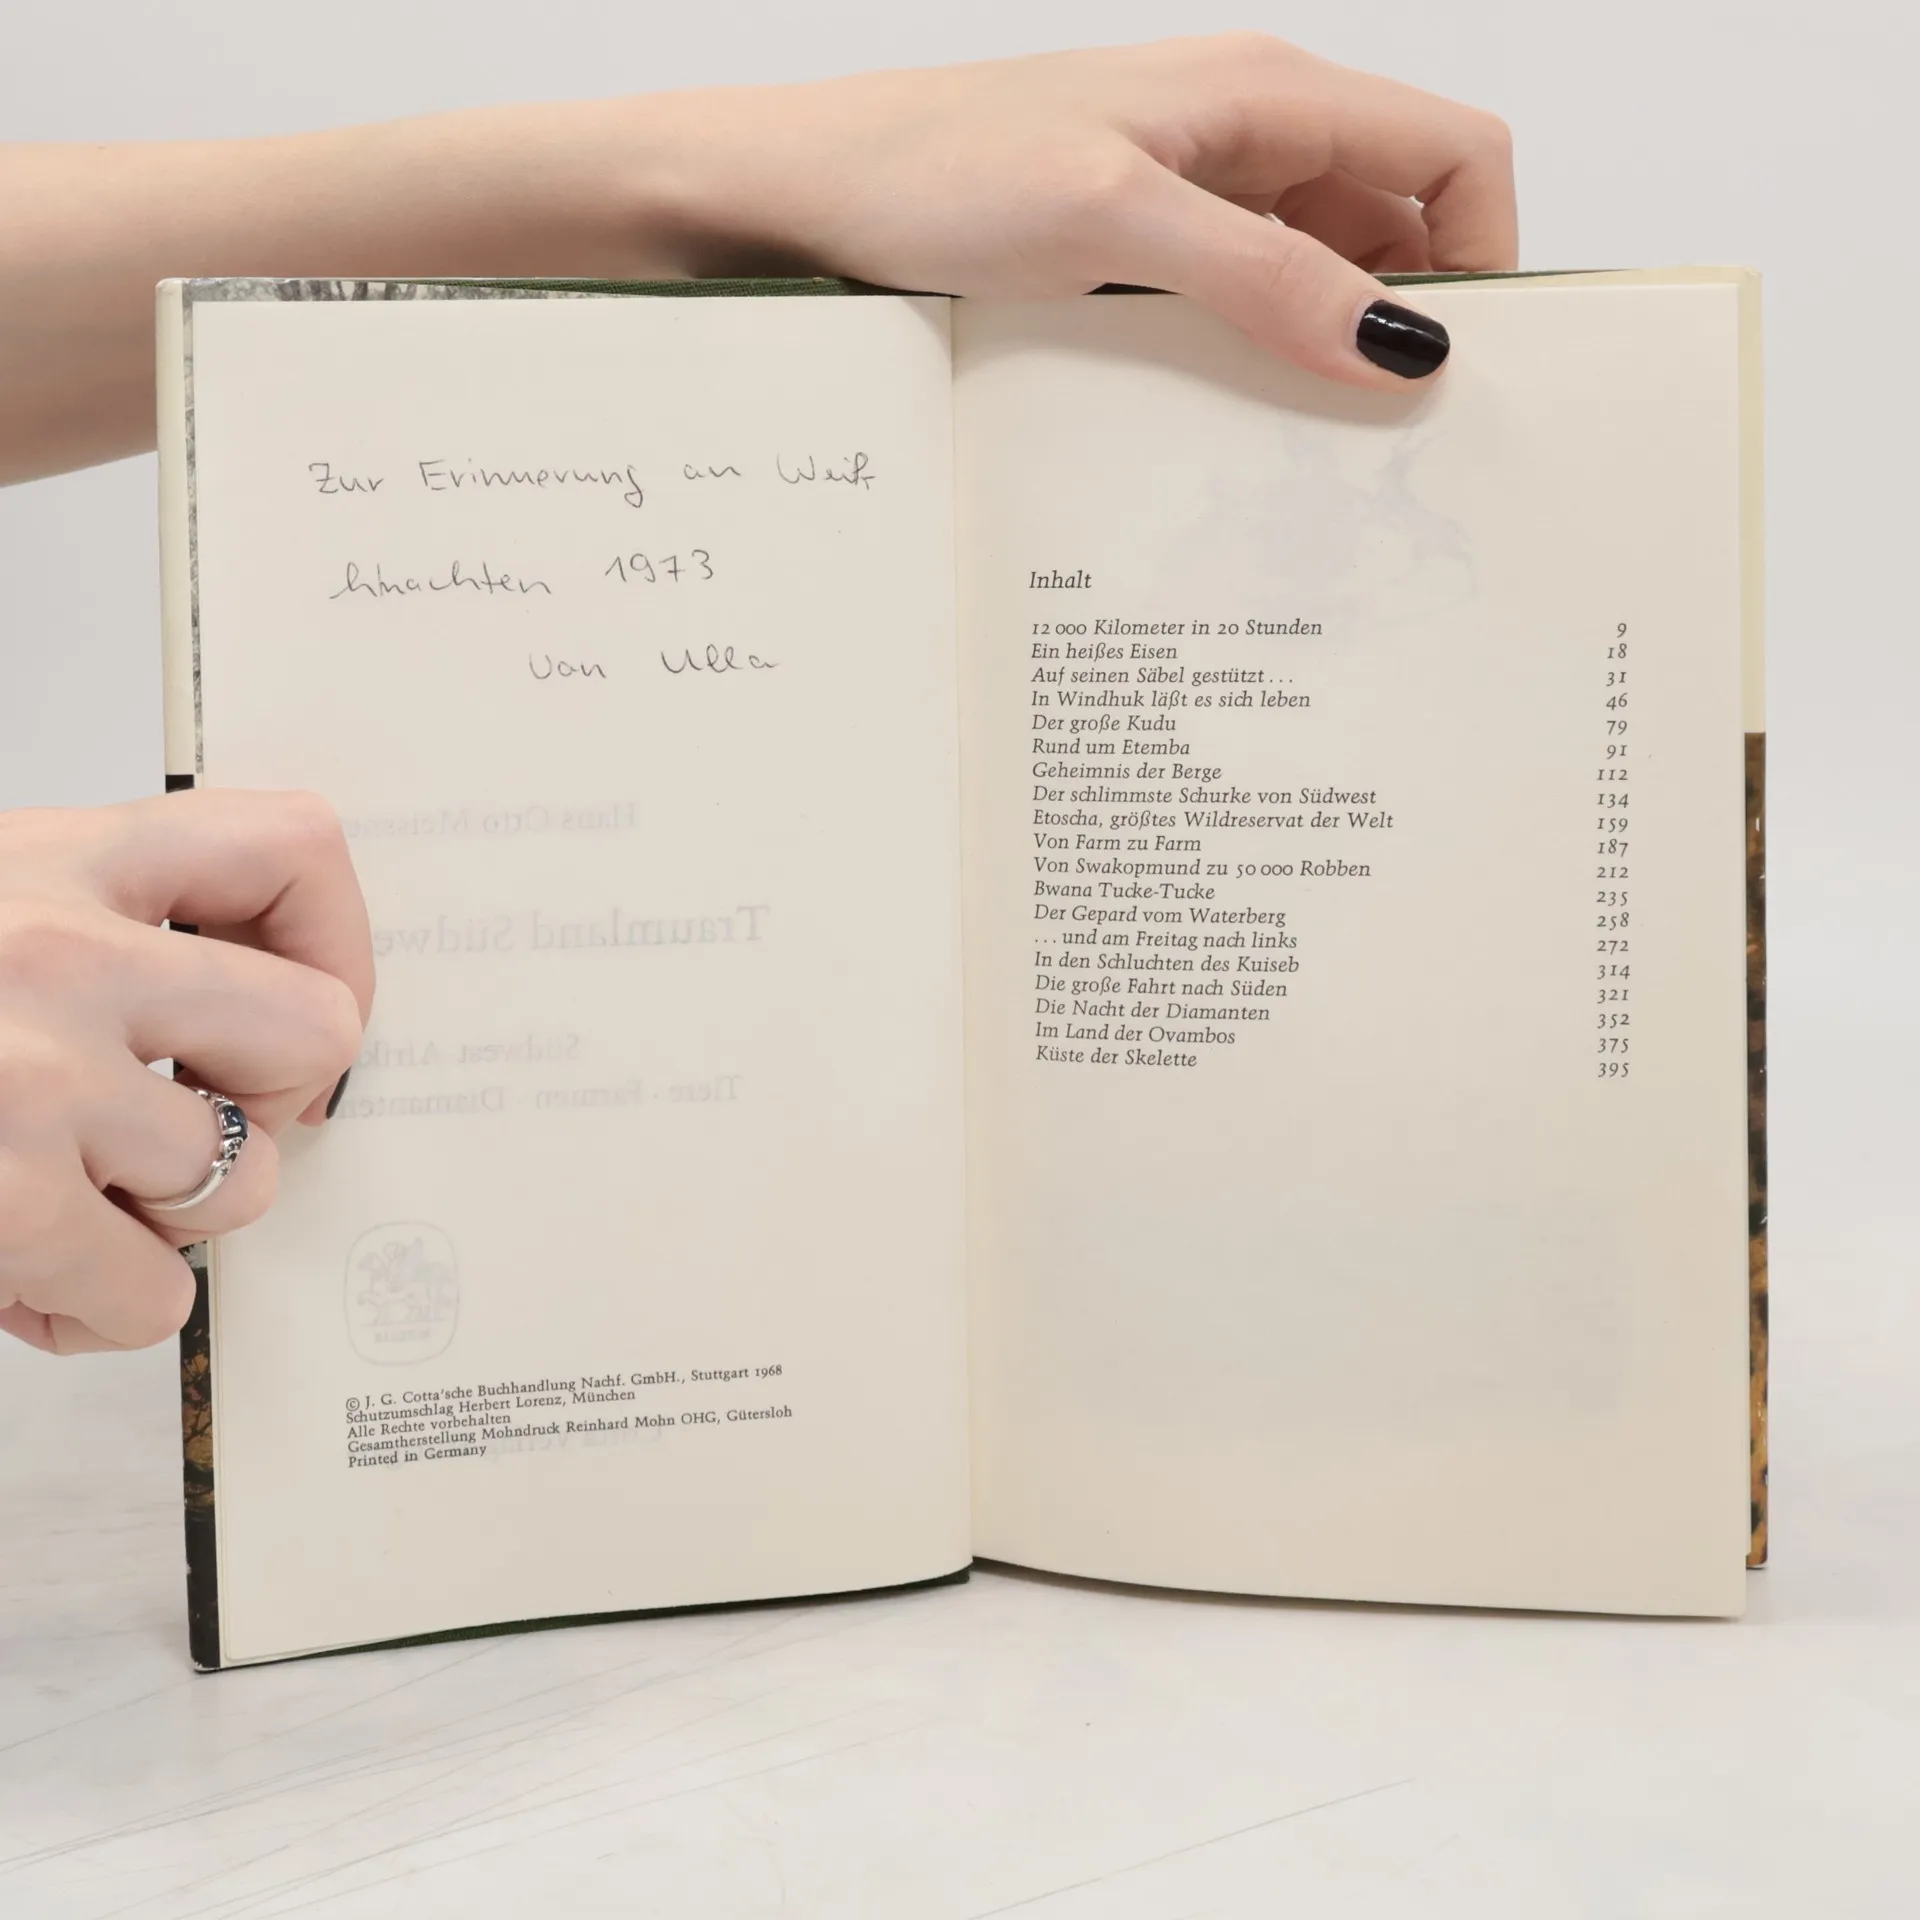 Zur Erinnerung an Weih-
hnachten 1973
von Ulla
© J. G. Cotta'sche Buchhandlung Nachf. GmbH., Stuttgart 1968
Schutzumschlag Herbert Lorenz, München
Alle Rechte vorbehalten
Gesamtherstellung Mohndruck Reinhard Mohn OHG, Gütersloh
Printed in Germany
Inhalt
12 000 Kilometer in 20 Stunden 9
Ein heißes Eisen 18
Auf seinen Säbel gestützt . . . 31
In Windhuk läßt es sich leben 46
Der große Kudu 79
Rund um Etemba 91
Geheimnis der Berge 112
Der schlimmste Schurke von Südwest 134
Etoscha, größtes Wildreservat der Welt 159
Von Farm zu Farm 187
Von Swakopmund zu 50 000 Robben 212
Bwana Tucke-Tucke 235
Der Gepard vom Waterberg 258
. . . und am Freitag nach links 272
In den Schluchten des Kuiseb 314
Die große Fahrt nach Süden 321
Die Nacht der Diamanten 352
Im Land der Ovambos 375
Küste der Skelette 395